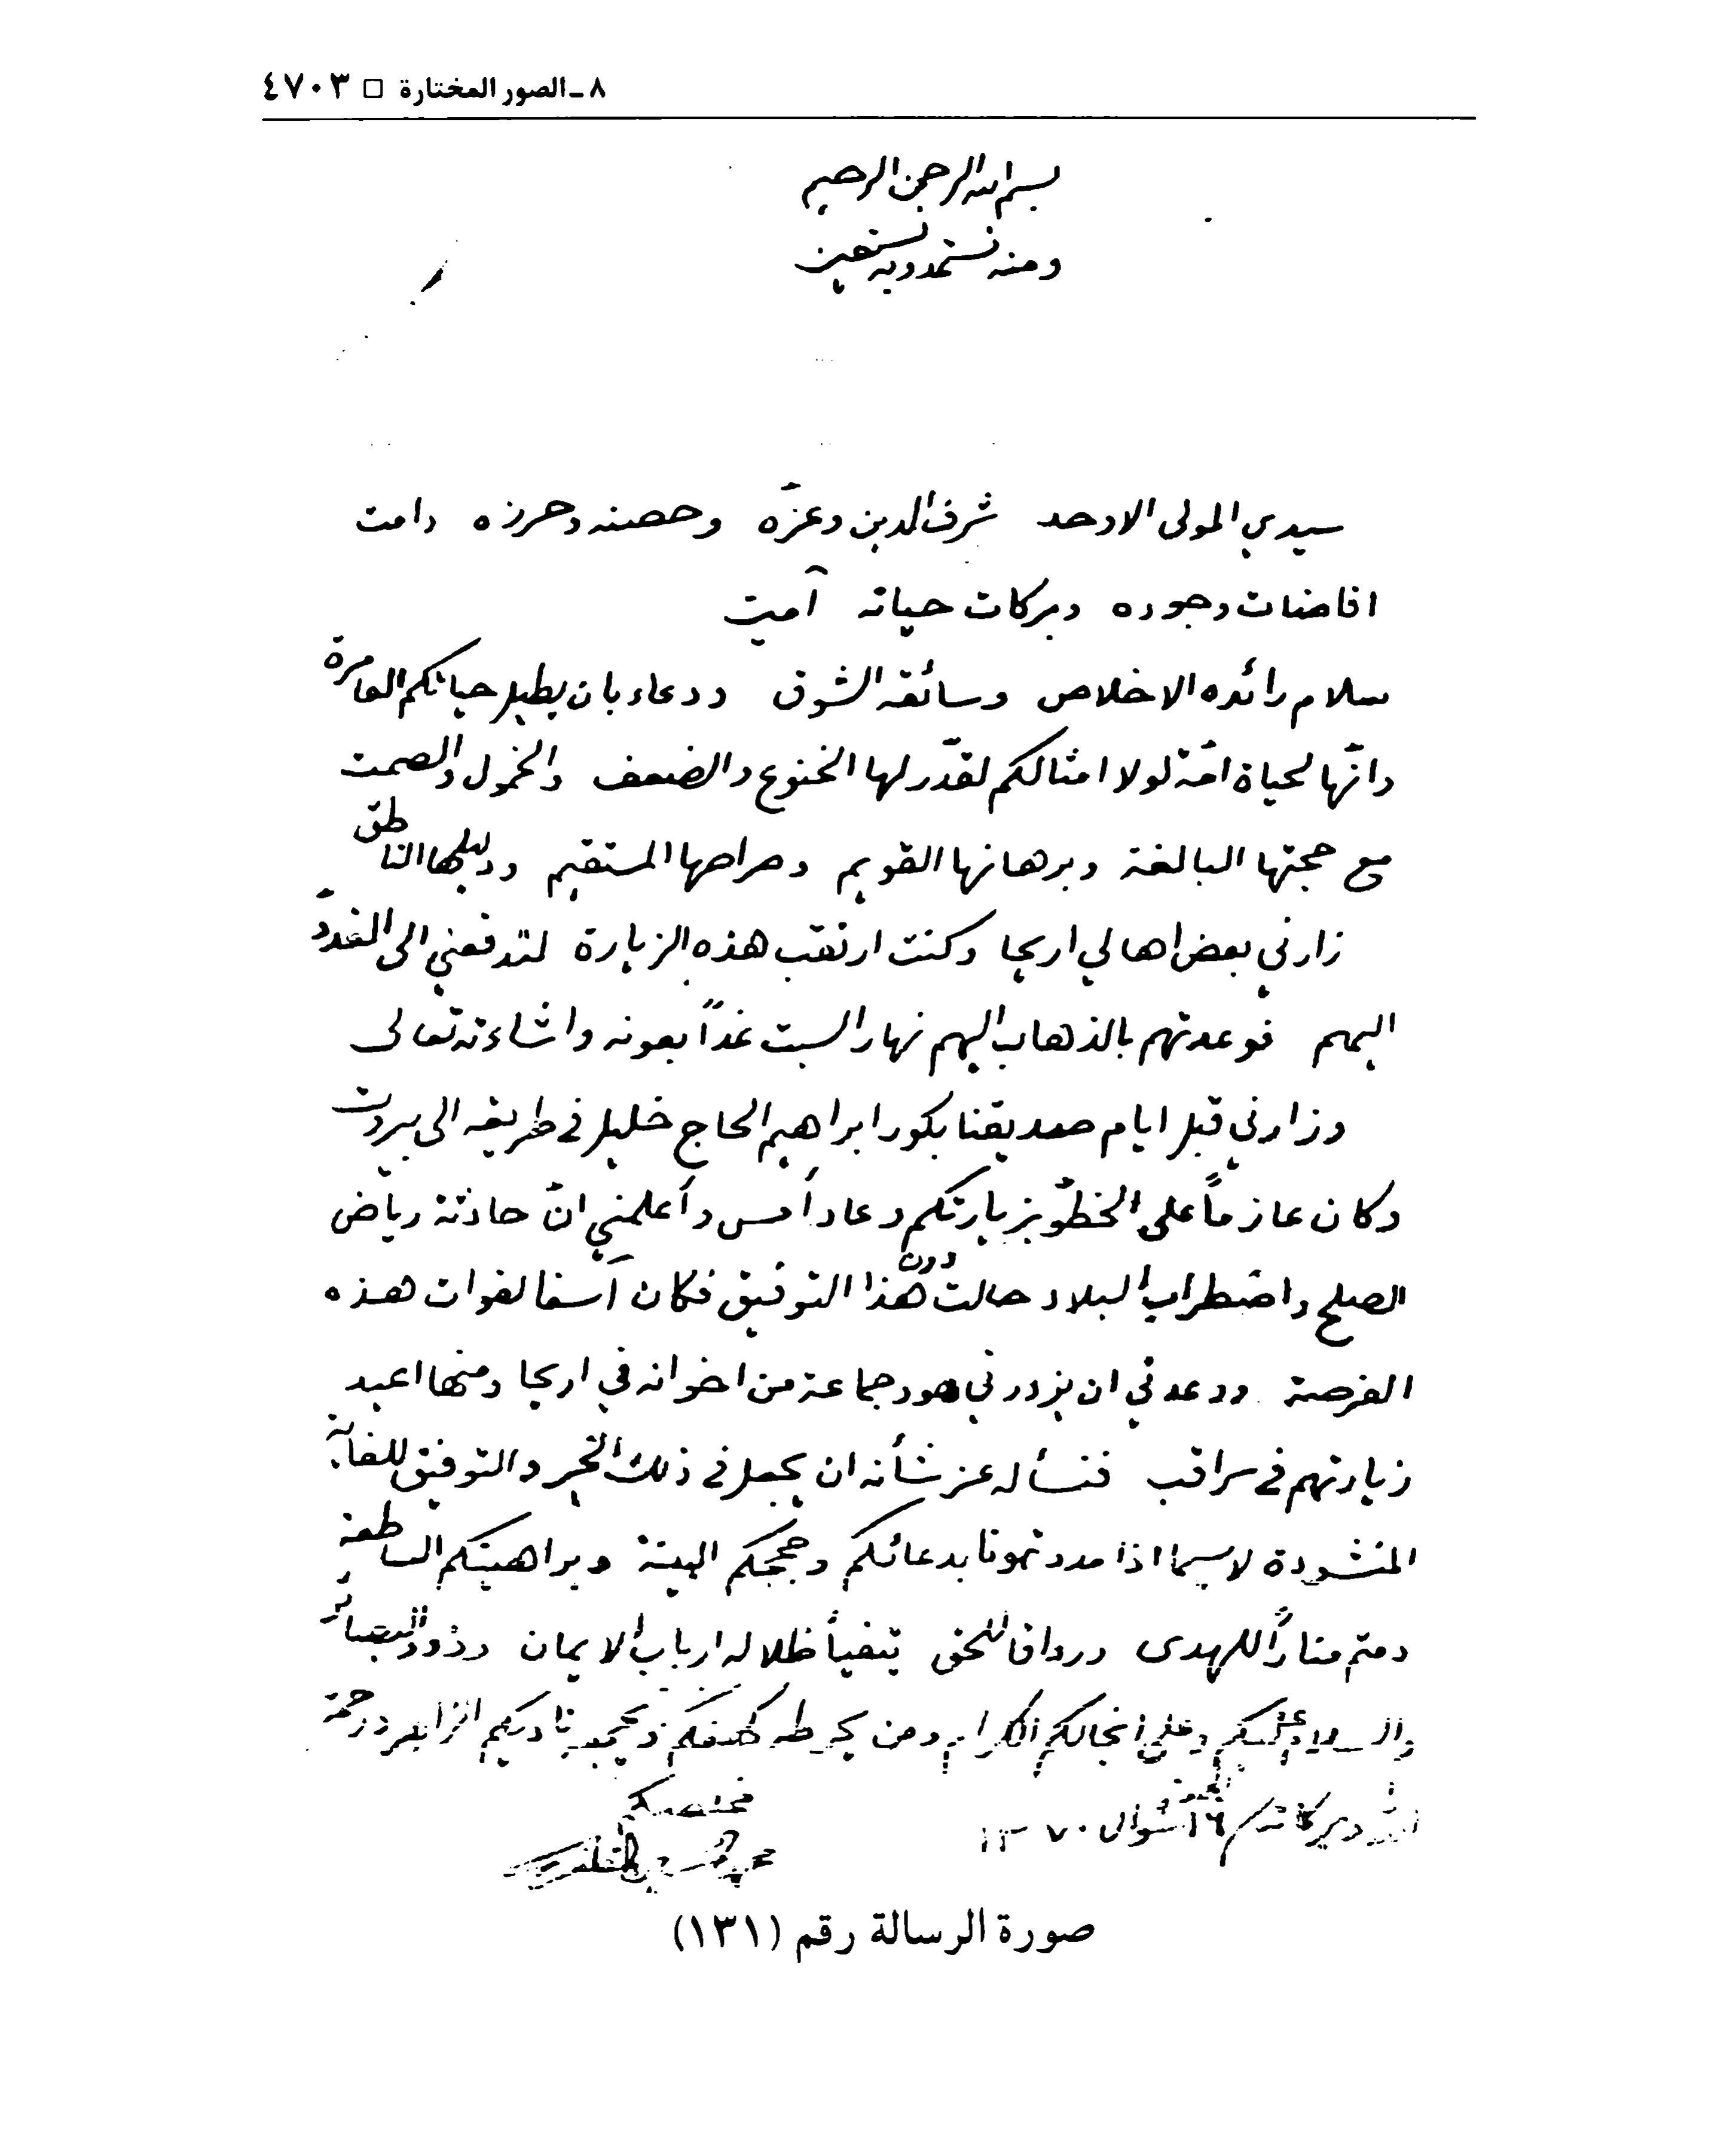 ٨ ـ الصور المختارة □ ٤٧٠٣
بسم الله الرحمن الرحيم
ومنه نستمد وبه نستعين
سيدي المولى الاوحد شرف الدين وعزّه وحصنه وحرزه دامت
افاضات وجوده وبركات حياته آمين
سلام رائده الاخلاص وسائقه الشوق ودعاء بان يطيل حياتكم العامرة
وانّها لحياة امّة لولا امثالكم لقدّر لها الخنوع والضعف والخمول والصمت
مع حجتها البالغة وبرهانها القويم وصراطها المستقيم ودليلها الناطق
زارني بعض اهالي اريحا وكنت ارتقب هذه الزيارة لتدفعني الى
اليهم فوعدتهم بالذهاب اليهم نهار السبت غداً بعونه واشاءته تعالى
وزارني قبل ايام صديقنا بكور ابراهيم الحاج خليل في طريقه الى بيروت
وكان عازماً على الخطوّ بزيارتكم وعاد أمس وأعلمني انّ حادثة رياض
الصلح واضطراب البلاد حالت دون هذا التوفيق فكان آسفا لفوات هذه
الفرصة ووعدني ان يزورني هو وجماعة من اخوانه في اريحا ومنها اعيد
زيارتهم في سراقب فنسأله عز شأنه ان يجعل في ذلك الخير والتوفيق للغاية
المنشودة لا سيما اذا مددتمونا بدعائكم وحججكم البينة وبراهينكم الساطعة
دمتم مناراً للهدى ورواقا للحق يتفيأ ظلاله ارباب الايمان وذوو البصائر
والسلام عليكم وعلى انجالكم الكرام ومن يحوطه كنفكم ويجمعه ناديكم الزاهر ورحمة
الله وبركاته / الجمعة ١٦ شوال ١٣٧٠
مخلصكم
محمد
صورة الرسالة رقم (١٣١)